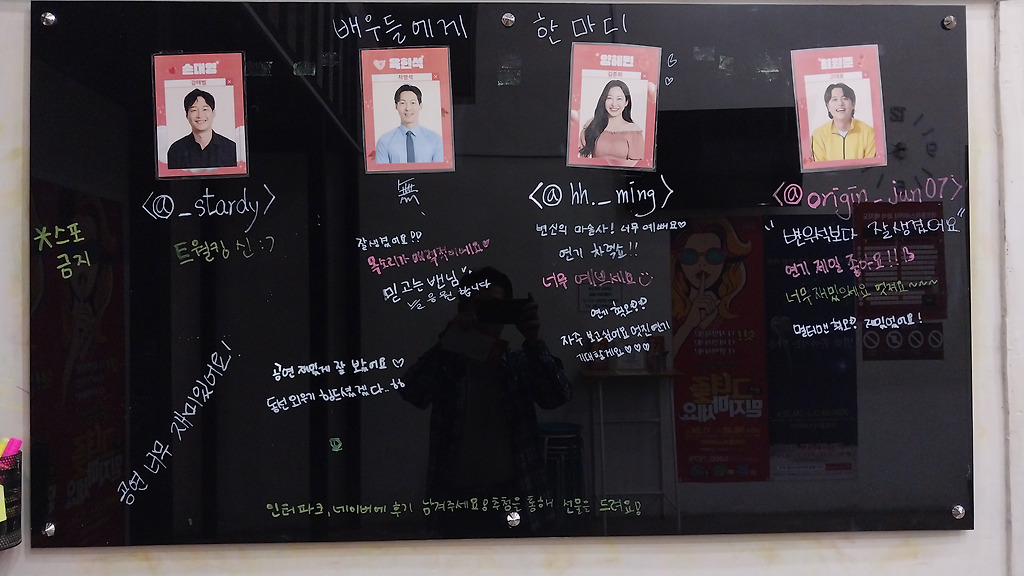 배우들에게 한마디
손대영
옥인석
차영석
양혜민
김준희
<@_stardy>
無
<@hh._ming>
<@origin_jun07>
*스포
금지
트월킹 신 :7
잘생겼어요??
목소리가 매력적이에요♡
믿고는 밴님
응원합니다
변신의 마술사! 너무 예뻐요♡
연기 차력쇼!!
너무 예쁘세요
연기 최고♡♡
자주 보고싶어요 멋진연기
기대할게요♡♡♡
"변우석보다 잘생겼어요"
연기 제일 좋아요!!
너무재밌었어요 멋져요~~~~
멀티맨 최고♡ 재밌었어요!
공연 재밌게 잘 봤어요 ♡
동선 외우기 힘드셨겠다..ㅎㅎ
공연 너무 재미있어요!
인터파크, 네이버에 후기 남겨주세요! 추첨을 통해 선물을 드려요!